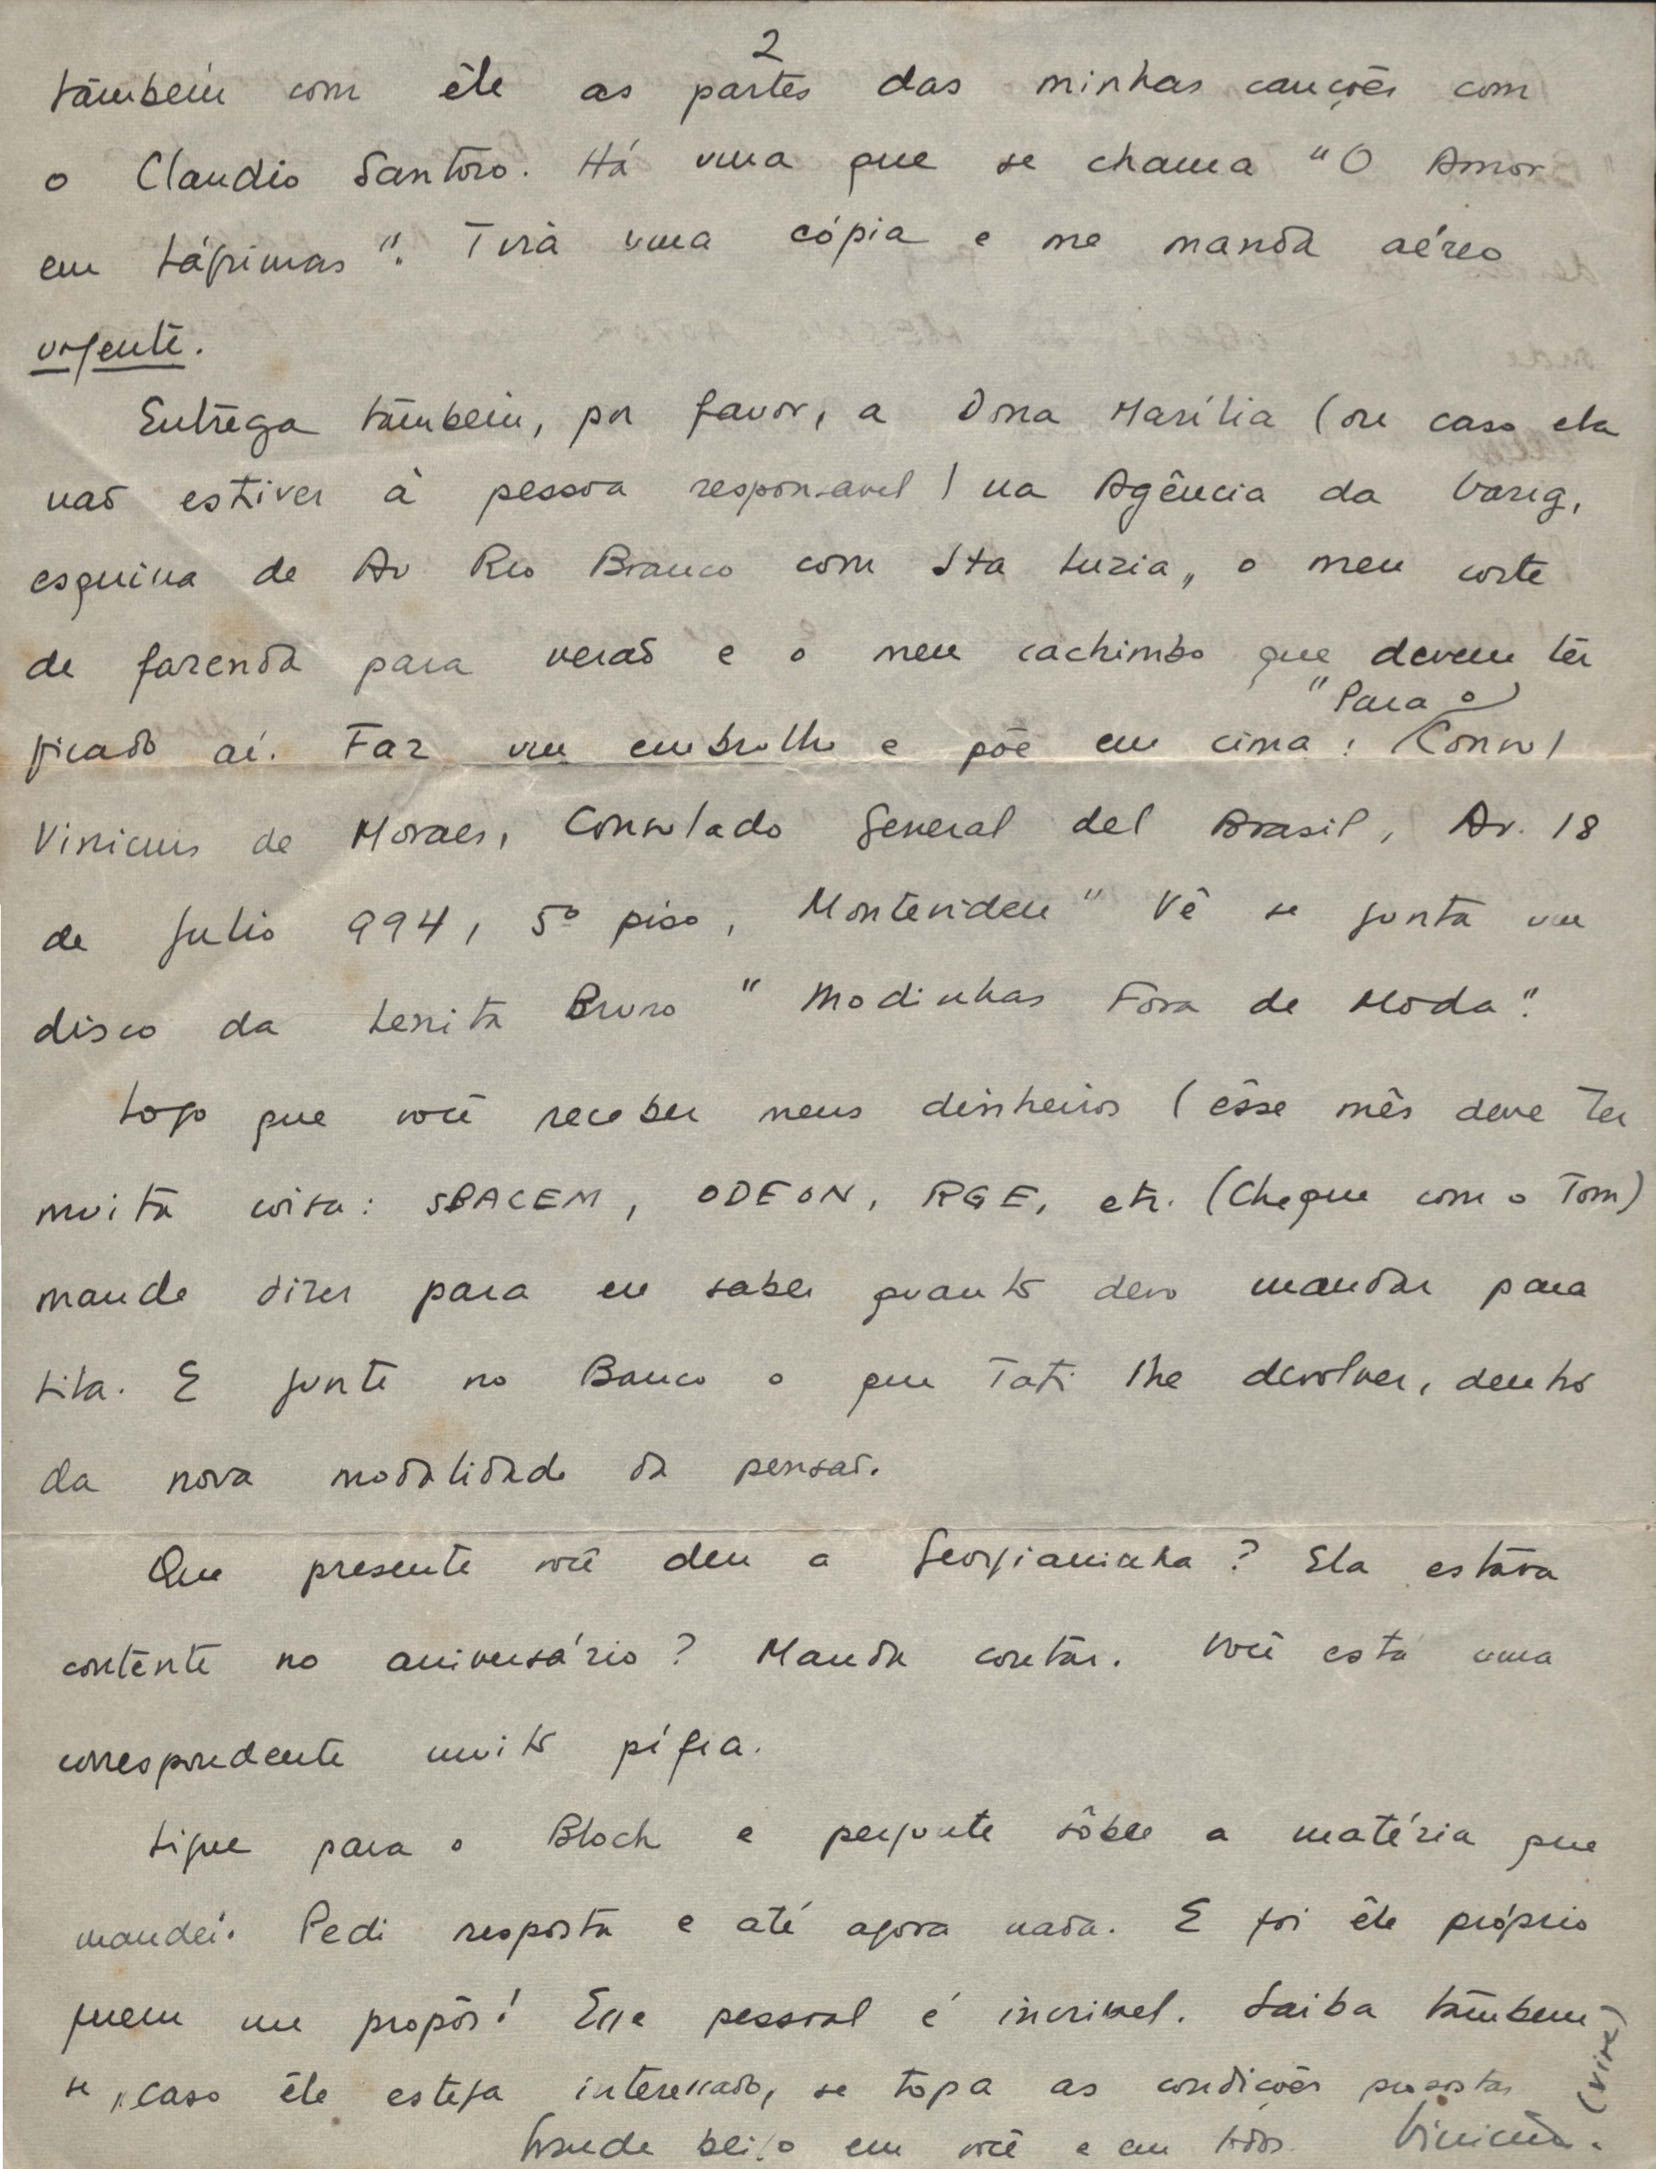 2
também com êle as partes das minhas canções com
o Claudio Santoro. Há uma que se chama "O Amor
em Lágrimas". Tira uma cópia e me manda aéreo
urgente.
Entrega também, por favor, a Dona Marília (ou caso ela
não estiver à pessoa responsavel) na Agência da Varig,
esquina de Av Rio Branco com Sta Luzia, o meu corte
de fazenda para verão e o meu cachimbo que devem ter
ficado aí. Faz um embrulho e põe em cima: "Para o Consul
Vinicius de Moraes, Consulado General del Brasil, Av. 18
de Julio 994, 5º piso, Montevideu" Vê se junta um
disco da Lenita Bruno "Modinhas Fora de Moda".
Logo que você receber meus dinheiros (êsse mês deve ter
muita coisa: SBACEM, ODEON, RGE, etc. (Cheque com o Tom)
mande dizer para eu saber quanto devo mandar para
Lila. E junte no Banco o que Tati lhe devolver, dentro
da nova modalidade da pensão.
Que presente você deu a Georgianinha? Ela estava
contente no aniversário? Manda contar. Você está uma
correspondente muito pífia.
Ligue para o Bloch e pergunte sôbre a matéria que
mandei. Pedi resposta e até agora nada. E foi êle próprio
quem me propôs! Esse pessoal é incrivel. Saiba também
se, caso êle esteja interessado, se topa as condições propostas
(vire)
Grande beijo em você e em todos. Vinicius.